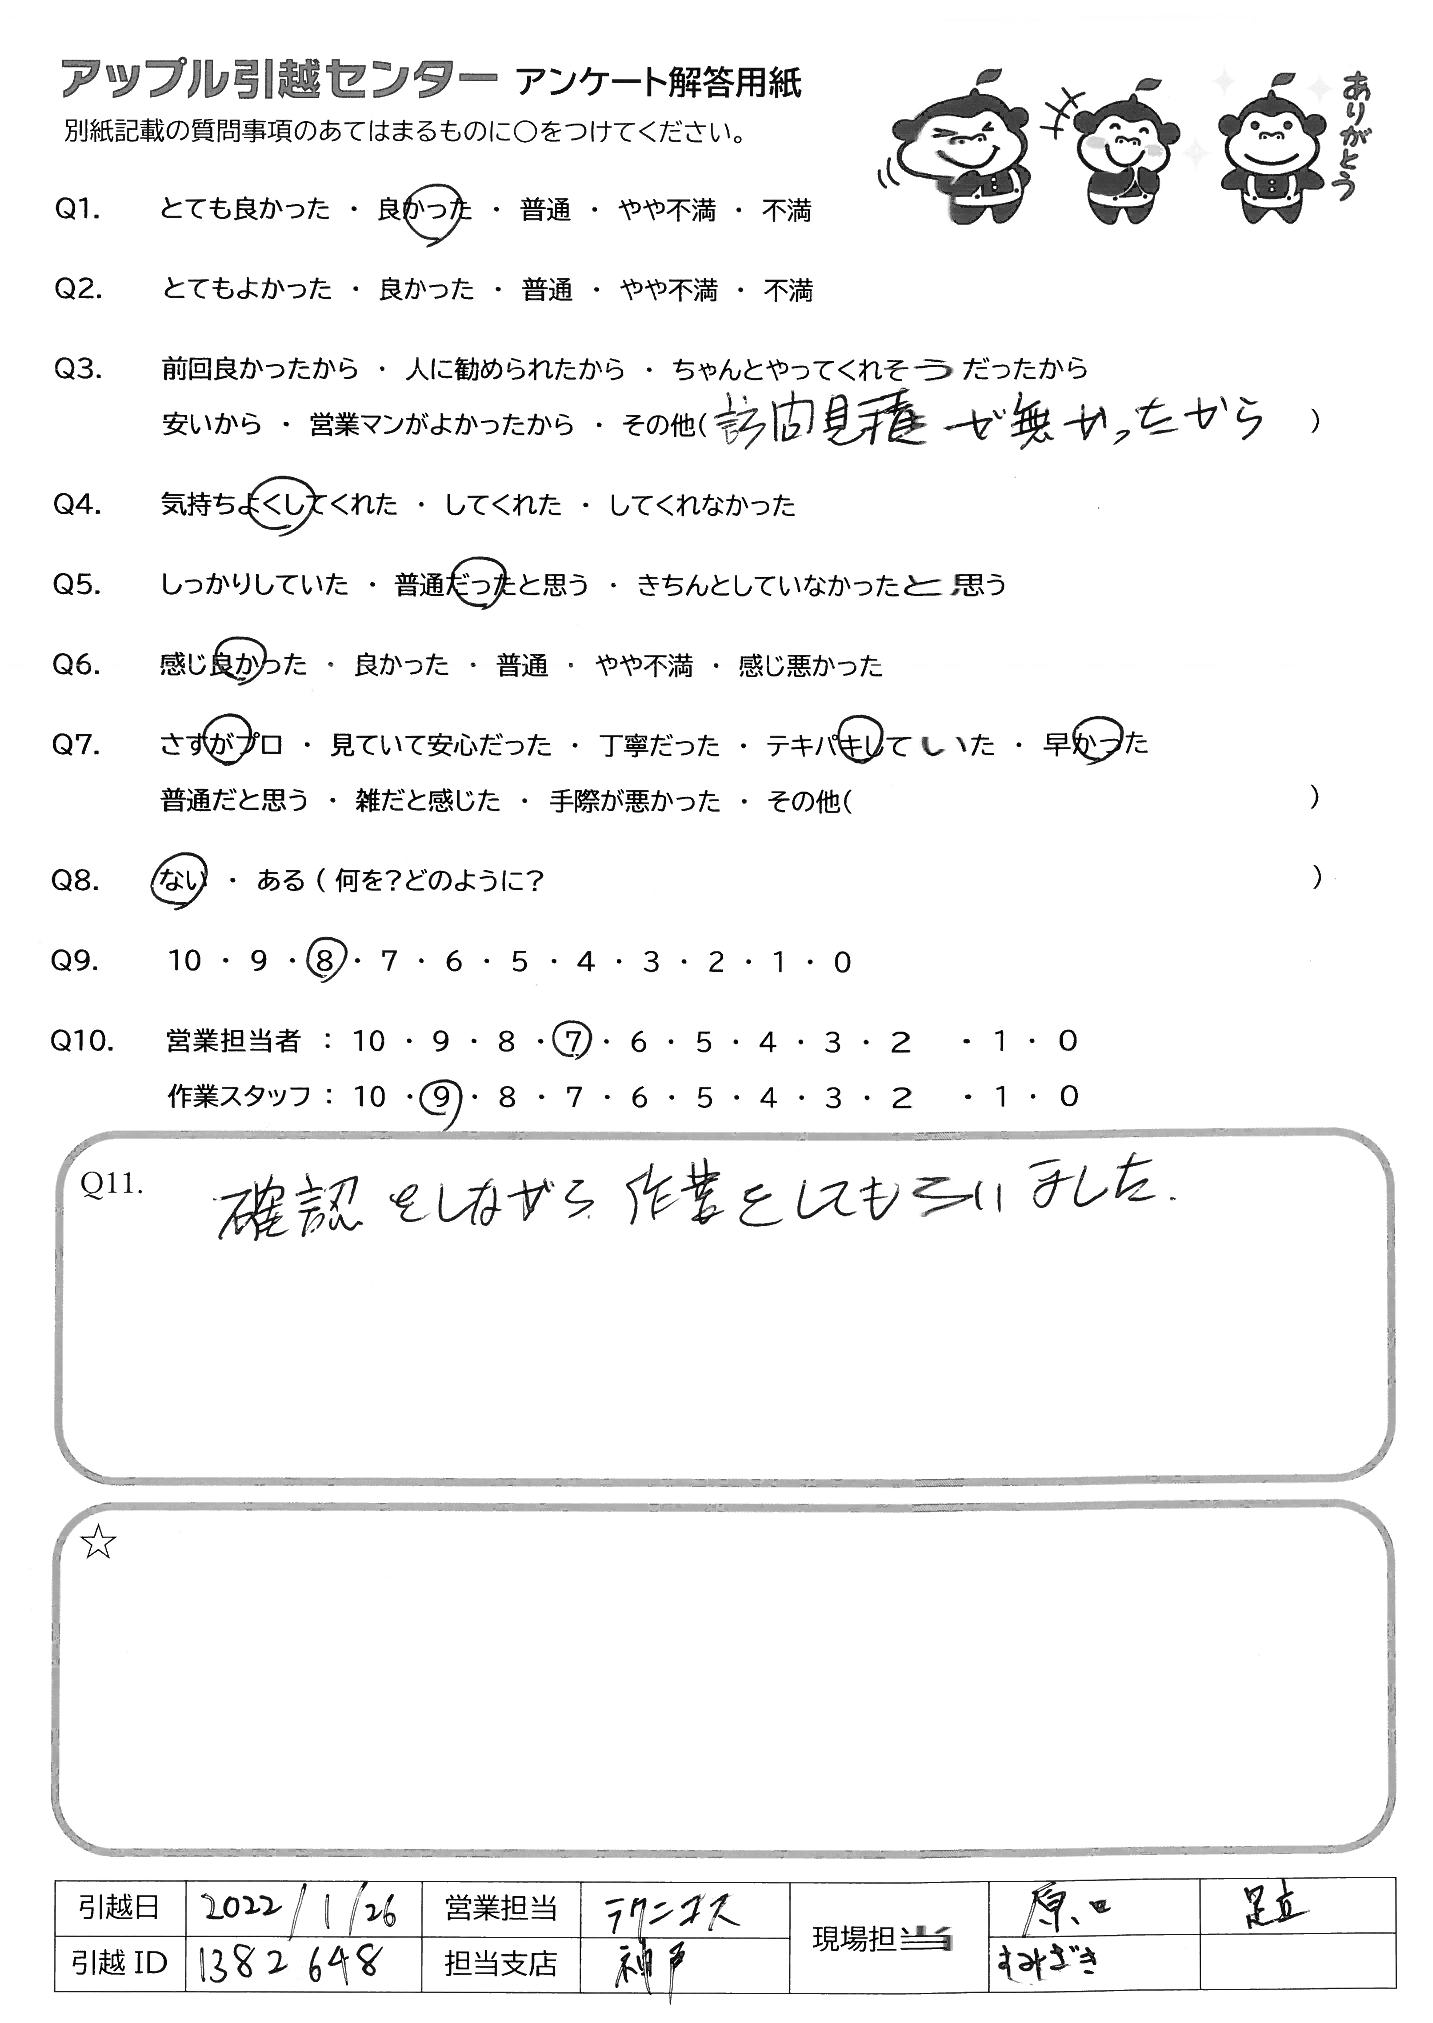 アップル引越センター アンケート解答用紙
別紙記載の質問事項のあてはまるものに〇をつけてください。
ありがとう
Q1. とても良かった ・ 良かった ・ 普通 ・ やや不満 ・ 不満
Q2. とてもよかった ・ 良かった ・ 普通 ・ やや不満 ・ 不満
Q3. 前回良かったから ・ 人に勧められたから ・ ちゃんとやってくれそうだったから
安いから ・ 営業マンがよかったから ・ その他( 訪問見積が無かったから )
Q4. 気持ちよくしてくれた ・ してくれた ・ してくれなかった
Q5. しっかりしていた ・ 普通だったと思う ・ きちんとしていなかったと思う
Q6. 感じ良かった ・ 良かった ・ 普通 ・ やや不満 ・ 感じ悪かった
Q7. さすがプロ ・ 見ていて安心だった ・ 丁寧だった ・ テキパキしていた ・ 早かった
普通だと思う ・ 雑だと感じた ・ 手際が悪かった ・ その他( )
Q8. ない ・ ある ( 何を?どのように? )
Q9. 10 ・ 9 ・ 8 ・ 7 ・ 6 ・ 5 ・ 4 ・ 3 ・ 2 ・ 1 ・ 0
Q10. 営業担当者 : 10 ・ 9 ・ 8 ・ 7 ・ 6 ・ 5 ・ 4 ・ 3 ・ 2 ・ 1 ・ 0
作業スタッフ : 10 ・ 9 ・ 8 ・ 7 ・ 6 ・ 5 ・ 4 ・ 3 ・ 2 ・ 1 ・ 0
Q11. 確認をしながら作業をしてもらいました.
☆
引越日 2022/1/26 営業担当 テクニカス 現場担当 原口 足立
引越ID 1382648 担当支店 神戸 すみざき